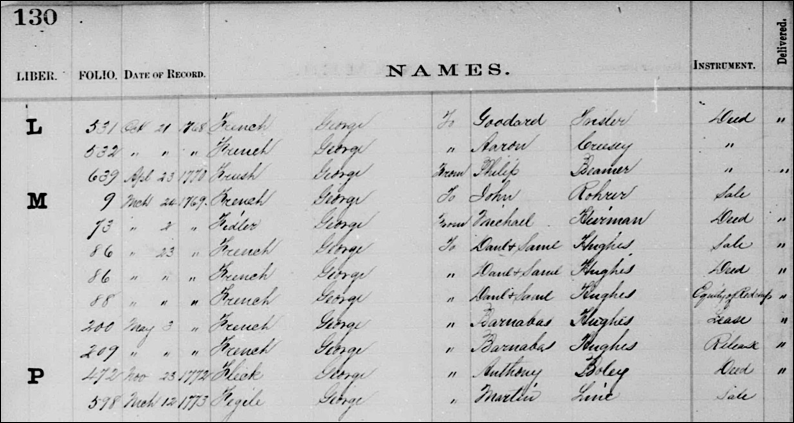 130
LIBER. FOLIO. DATE OF RECORD. NAMES. INSTRUMENT. Delivered.
L 531 Oct 21 1768 French George To Goodard Deed "
532 " " " French George " Aaron Creesey " "
639 Apl 23 1770 Frush George From Philip Beamer " "
M 9 Mch 20 1769. French George To John Rohrer Sale "
73 " 2 " Fidler George From Michael Deed "
86 " 23 " French George To Danl & Saml Hughes Sale "
86 " " " French George " Danl & Saml Hughes Deed "
88 " " " French George " Danl & Saml Hughes Equity of "
200 May 3 " French George " Barnabas Hughes Lease "
209 " " " French George " Barnabas Hughes Release "
P 472 Nov 23 1772 Flick George " Anthony Boley Deed "
598 Mch 12 1773 George " Martin Line Sale "